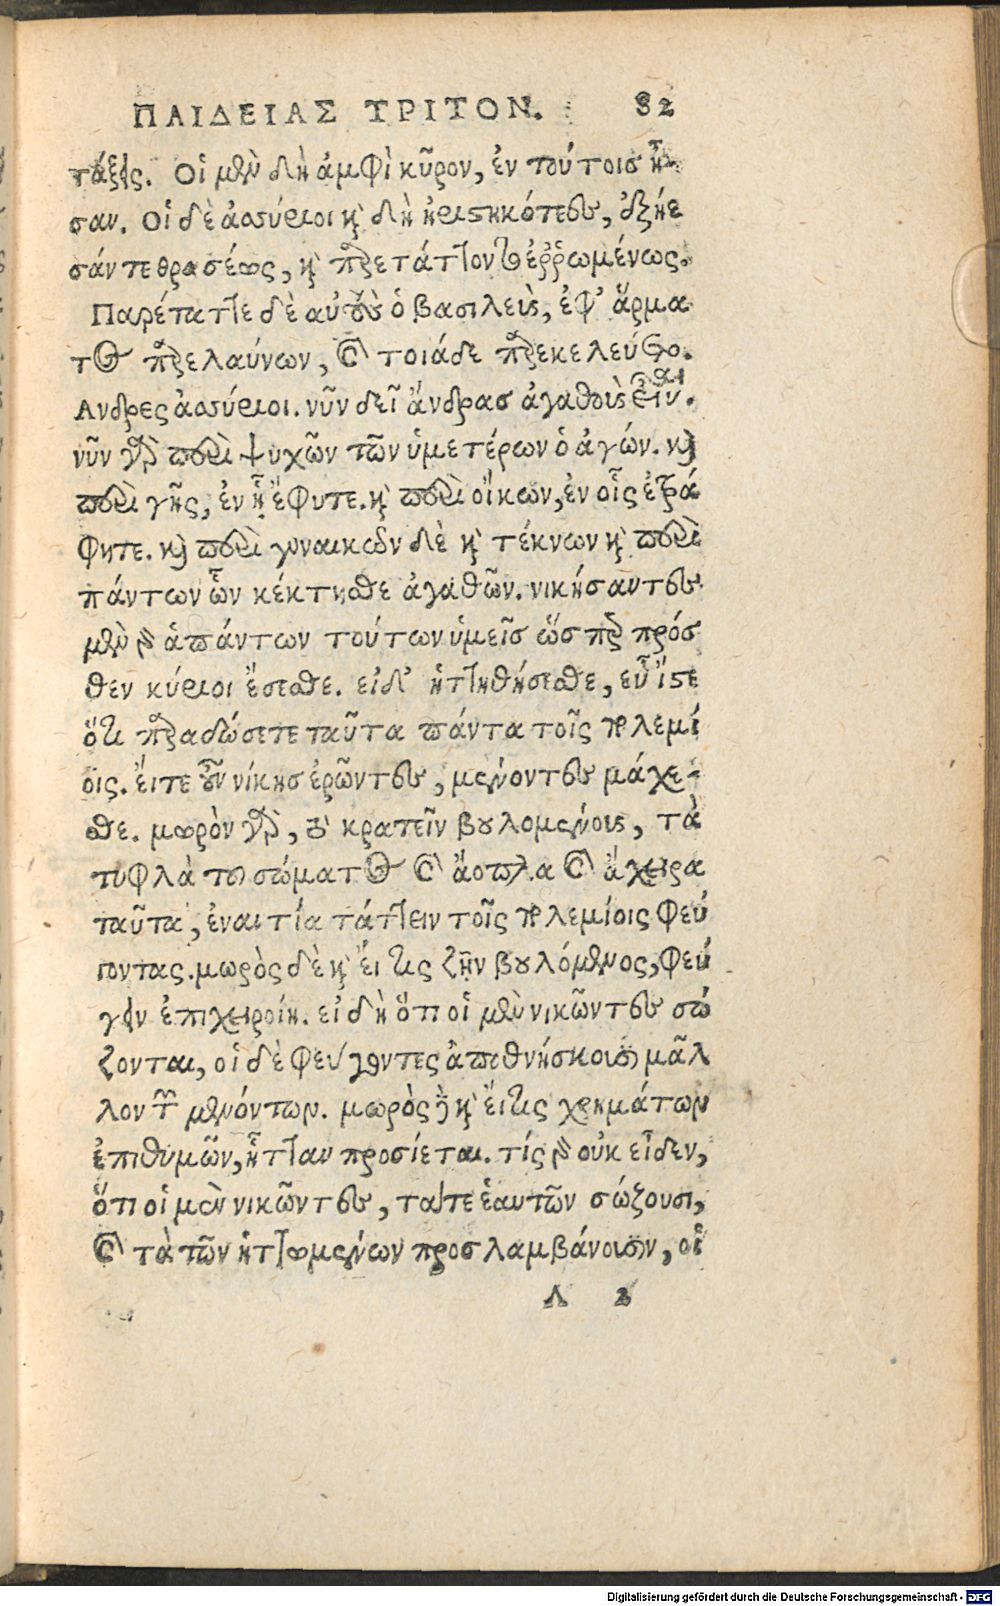 ΠΑΙΔΕΙΑΣ ΤΡΙΤΟΝ. 82
τάξεις. Οἱ μὲν δὴ ἀμφὶ κῦρον, ἐν τούτοισ ἦ-
σαν. Οἱ δὲ ἀσσύριοι καὶ δὴ ἠριστηκότες, ἐξῄε
σάν τε θρασέως, καὶ παρετάττοντο ἐῤῥωμένως.
Παρέταττε δὲ αὐτοὺς ὁ βασιλεὺς, ἐφ’ ἅρμα
τος παρελαύνων, καὶ τοιάδε παρεκελεύετο.
Ανδρες ἀσσύριοι. νῦν δεῖ ἄνδρασ ἀγαθοὺς εἶναι.
νῦν γὰρ περὶ ψυχῶν τῶν ὑμετέρων ὁ ἀγών. καὶ
περὶ γῆς, ἐν ᾗ ἔφυτε. καὶ περὶ οἴκων, ἐν οἷς ἐτρά
φητε. καὶ περὶ γυναικῶν δὲ καὶ τέκνων καὶ περὶ
πάντων ὧν κέκτησθε ἀγαθῶν. νικήσαντες
μὲν γὰρ ἁπάντων τούτων ὑμεῖσ ὥσπερ πρόσ
θεν κύριοι ἔσεσθε. εἰ δ’ ἡττηθήσεσθε, εὖ ἴστε
ὅτι παραδώσετε ταῦτα πάντα τοῖς πολεμί
οις. ἅιτε οὖν νίκησ ἐρῶντες, μένοντες μάχε-
σθε. μωρὸν γὰρ, τὸ κρατεῖν βουλομένους, τὰ
τυφλὰ του σώματος καὶ ἄοπλα καὶ ἄχειρα
ταῦτα, ἐναντία τάττειν τοῖς πολεμίοις φεύ
γοντας. μωρὸς δὲ καὶ εἴ τις ζῆν βουλόμενος, φεύ
γειν ἐπιχειροίη. εἰδὴ ὅτι οἱ μὲν νικῶντες σώ
ζονται, οἱ δὲ φεύγοντες ἀποθνήσκουσι μᾶλ
λον τῶν μενόντων. μωρὸς δὲ καὶ εἴ τις χρημάτων
ἐπιθυμῶν, ἧτταν προσίεται. τίς γὰρ οὐκ εἶδεν,
ὅτι οἱ μὲν νικῶντες, τά τε ἑαυτῶν σώζουσι,
καὶ τὰ τῶν ἡττωμένων προσλαμβάνουσιν, οἱ
Λ 2
Digitalisierung gefördert durch die Deutsche Forschungsgemeinschaft - DFG